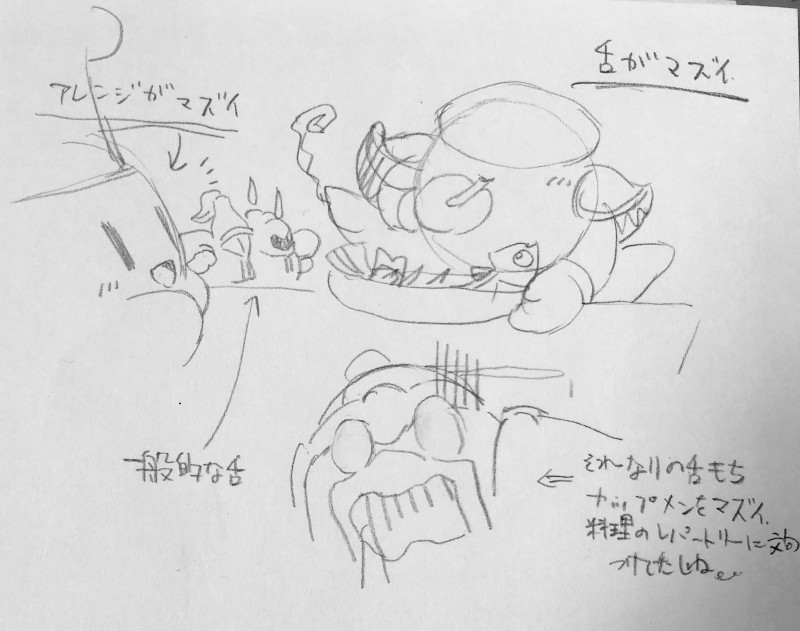 舌がマズイ
アレンジがマズイ
一般的な舌
それなりの舌もち
カップメンをマズイ、
料理のレパートリーに文句
つけてたしね。